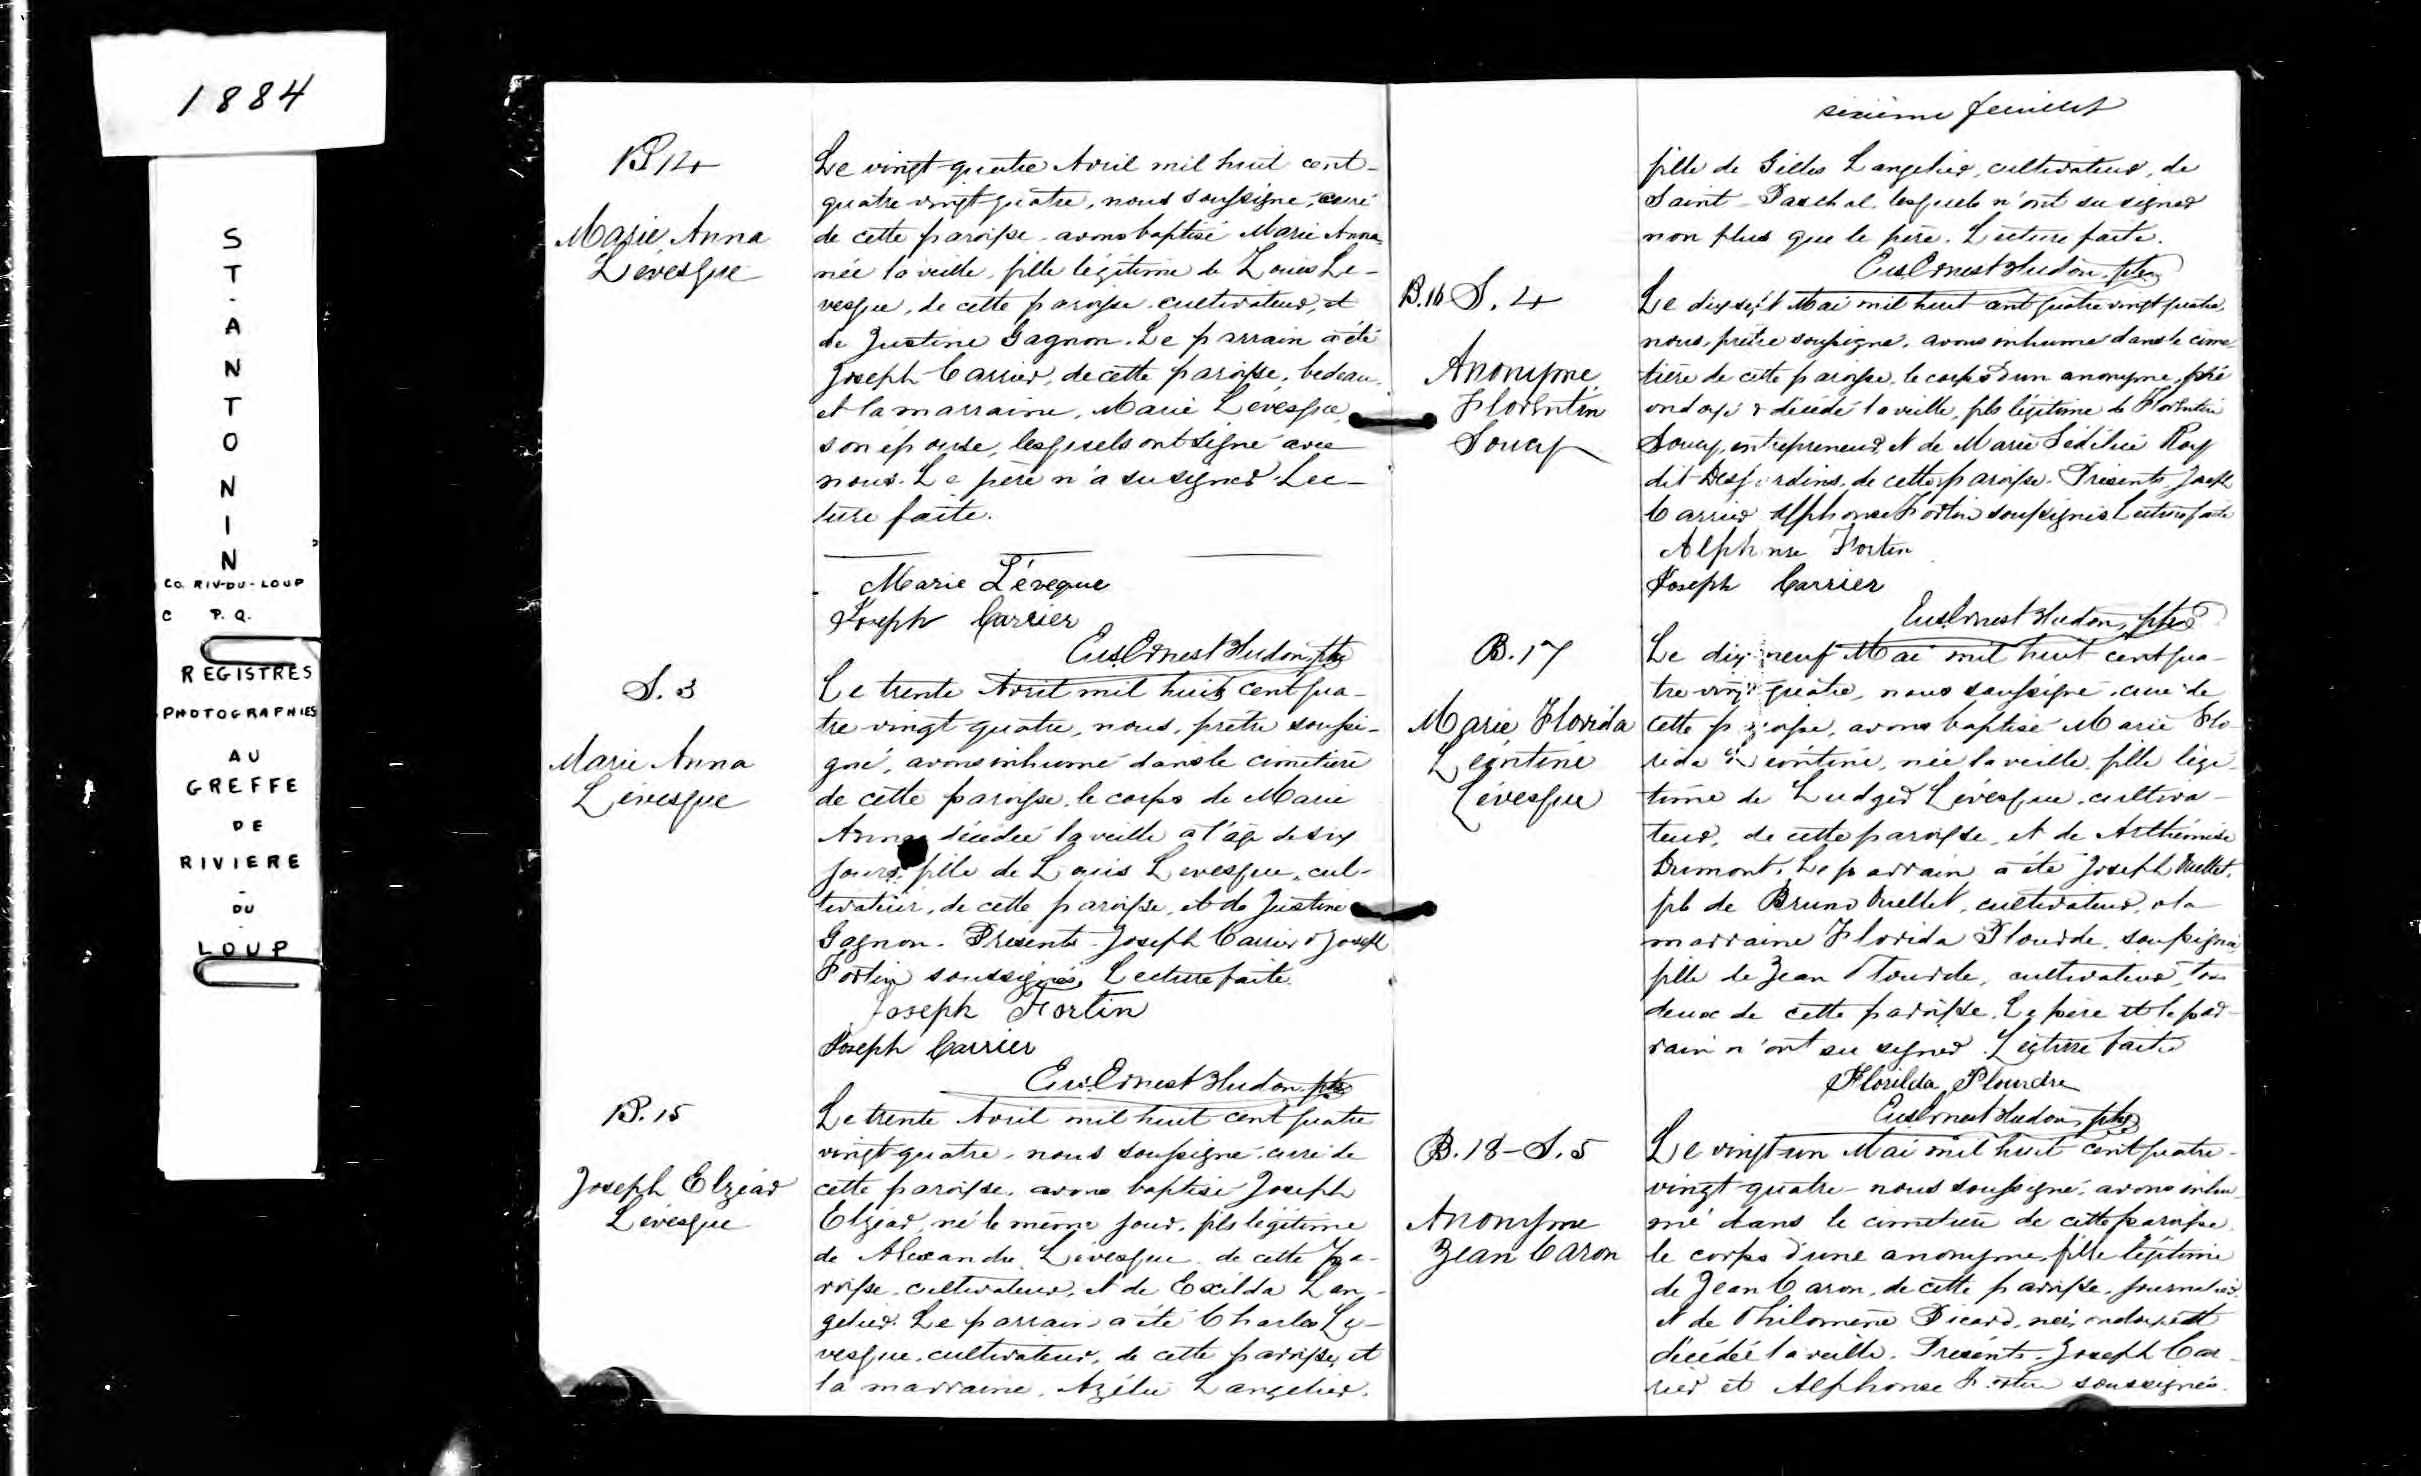 1884
ST. ANTONIN
CO. RIV-DU-LOUP
C P.Q.
REGISTRES
PHOTOGRAPHIES
AU
GREFFE
DE
RIVIERE
-
DU
-
LOUP
B. 14
Marie Anna
Lévesque
Le vingt-quatre Avril mil huit cent-
quatre vingt-quatre, nous soussigné, curé
de cette paroisse avons baptisé Marie Anna,
née la veille, fille légitime de Louis Le-
vesque, de cette paroisse cultivateur, et
de Justine Gagnon. Le parrain a été
Joseph Carrier, de cette paroisse, bedeau,
et la marraine, Marie Levesque,
son épouse, lesquels ont signé avec
nous. Le père n'a su signer. Lec-
ture faite.
Marie Léveque
Joseph Carrier
Eus. Ernest Hudon, ptre
S. 3
Marie Anna
Lévesque
Le trente Avril mil huit cent qua-
tre vingt quatre, nous, prêtre soussi-
gné, avons inhumé dans le cimetière
de cette paroisse, le corps de Marie
Anna décédée la veille à l'âge de six
jours, fille de Louis Levesque, cul-
tivateur, de cette paroisse, et de Justine
Gagnon. Présents Joseph Carrier & Joseph
Fortin soussignés, Lecture faite.
Joseph Fortin
Joseph Carrier
Eus. Ernest Hudon ptre
B. 15
Joseph Elzéar
Lévesque
Le trente Avril mil huit cent quatre
vingt-quatre, nous soussigné, curé de
cette paroisse, avons baptisé Joseph
Elzéar, né le même jour, fils légitime
de Alexandre Lévesque de cette pa-
roisse, cultivateur, et de Exilda Lan-
gelier. Le parrain a été Charles Le-
vesque, cultivateur, de cette paroisse, et
la marraine, Azélie Langelier,
sixième feuillet
fille de Gilles Langelier, cultivateur, de
Saint-Paschal, lesquels n'ont su signer
non plus que le père. Lecture faite.
Eus. Ernest Hudon, ptre
B. 16 S. 4
Anonyme
Florentin
Soucy
Le dix sept Mai mil huit cent quatre vingt quatre,
nous, prêtre soussigné, avons inhumé dans le cime-
tière de cette paroisse, le corps d'un anonyme, né
ondoyé & décédé la veille, fils légitime de Florentin
Soucy, entrepreneur, et de Marie Roy
dit Desjardins, de cette paroisse. Présents, Joseph
Carrier Alphonse Fortin soussignés Lecture faite
Alphonse Fortin
Joseph Carrier
Eus. Ernest Hudon, ptre
B. 17
Marie Florida
Léontine
Lévesque
Le dix-neuf Mai mil huit cent qua-
tre vingt quatre, nous soussigné, curé de
cette paroisse, avons baptisé Marie Flo-
rida Léontine, née la veille, fille légi-
time de Ludger Lévesque, cultiva-
teur, de cette paroisse, et de Arthémise
Dumont. Le parrain a été Joseph Ouellet,
fils de Bruno Ouellet, cultivateur, & la
marraine Florida Plourde, soussignée
fille de Jean Plourde, cultivateur, tous
deux de cette paroisse. Le père et le par-
rain n'ont su signer. Lecture faite
Florilda Plourdre
Eus. Ernest Hudon, ptre
B. 18 - S. 5
Anonyme
Jean Caron
Le vingt-un Mai mil huit cent quatre-
vingt quatre nous soussigné, avons inhu-
mé dans le cimetière de cette paroisse
le corps d'une anonyme, fille légitime
de Jean Caron, de cette paroisse, journalier,
et de Philomène Picard, née, ondoyée et
décédée la veille. Présents, Joseph Car-
rier et Alphonse Fortin soussignés.